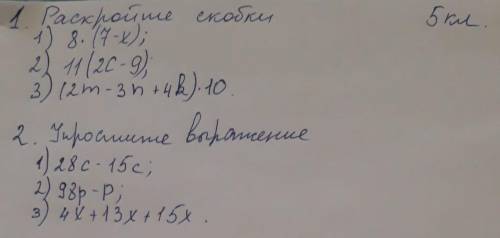 1. Раскройте скобки 5 кл.
1) 8·(7-x);
2) 11(2c-9);
3) (2m-3n+4k)·10.
2. Упростите выражение
1) 28c-15c;
2) 98p-p;
3) 4x+13x+15x.